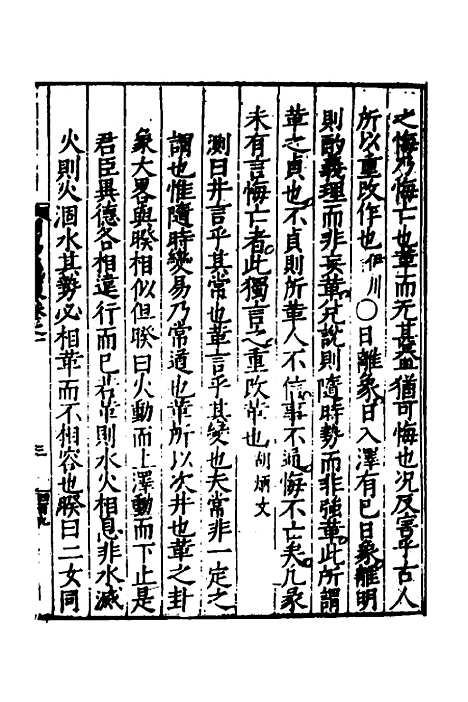 之悔乃悔亡也革而无甚益猶可悔也况反害乎古人
所以重改作也伊川○日離象日入澤有已日象離明
則酌義理而非妄革兌說則隨時勢而非強革此所謂
革之貞也不貞則所革人不信事不通悔不亡矣凡彖
未有言悔亡者此獨言之重改革也胡炳文
測曰井言乎其常也革言乎其變也夫常非一定之
謂也惟隨時變易乃常道也革所以次井也革之卦
象大畧與睽相似但睽曰火動而上澤動而下止是
君臣異德各相違行而已若革則水火相息非水滅
火則火涸水其勢必相革而不相容也睽曰二女同
三